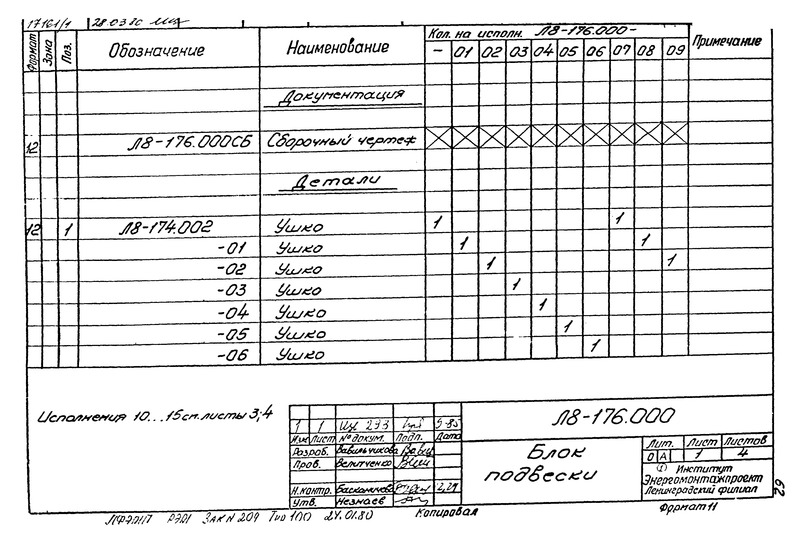 17161/1 28.03.80
Формат Зона Поз. Обозначение Наименование Кол. на исполн. Л8-176.000- Примечание
- 01 02 03 04 05 06 07 08 09
Документация
12 Л8-176.000СБ Сборочный чертеж X X X X X X X X X X
Детали
12 1 Л8-174.002 Ушко 1 1
-01 Ушко 1 1
-02 Ушко 1 1
-03 Ушко 1
-04 Ушко 1
-05 Ушко 1
-06 Ушко 1
Исполнения 10...15 см. листы 3;4
1 1 Изв 293 5-85
Изм Лист № докум. Подп. Дата
Разраб. Вавильчикова
Пров. Велитченко
Н.контр.
Утв. Незнаев
Л8-176.000
Блок
подвески
Лит. Лист Листов
О А 1 4
Институт
Энергомонтажпроект
Ленинградский филиал
29
Копировал Формат 11
ЗАК N 209 Тир 100 24.01.80